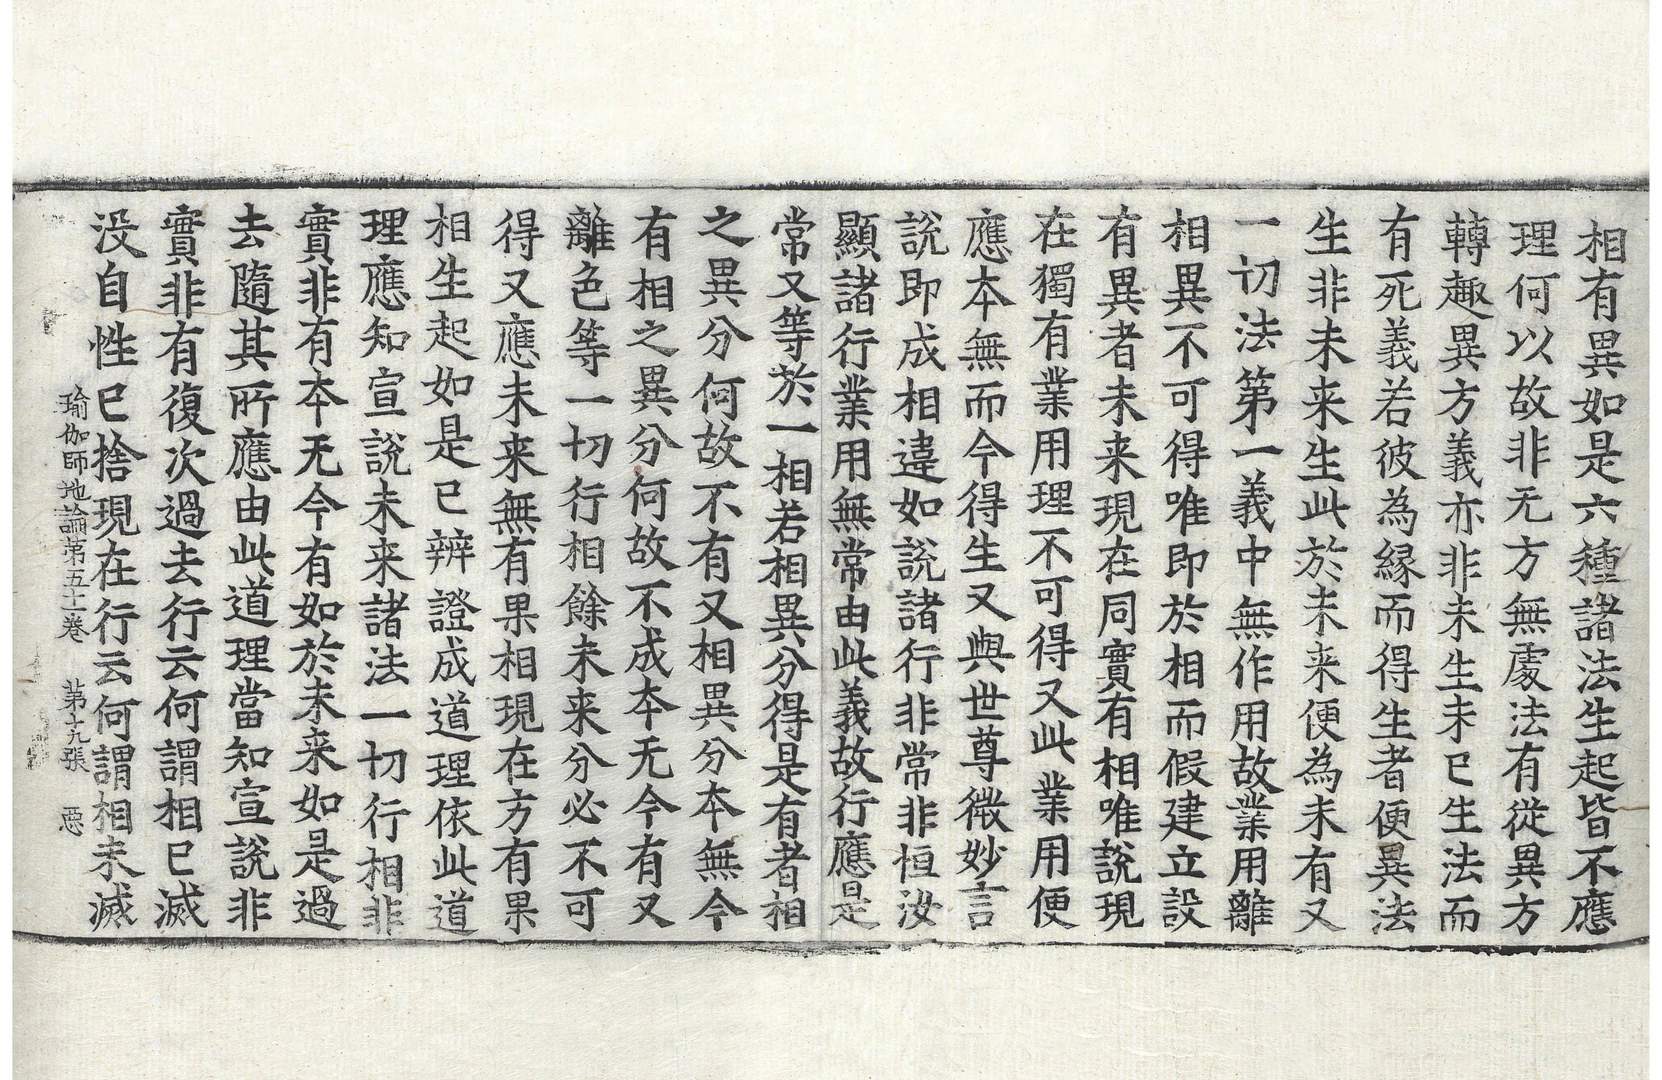 相有異如是六種諸法生起皆不應
理何以故非无方無處法有從異方
轉趣異方義亦非未生未已生法而
有死義若彼為縁而得生者便異法
生非未来生此於未来便為未有又
一切法第一義中無作用故業用離
相異不可得唯即於相而假建立設
有異者未来現在同實有相唯說現
在獨有業用理不可得又此業用便
應本無而今得生又與世尊微妙言
說即成相違如說諸行非常非恒汝
顯諸行業用無常由此義故行應是
常又等於一相若相異分得是有者相
之異分何故不有又相異分本無今
有相之異分何故不成本无今有又
離色等一切行相餘未来分必不可
得又應未来無有果相現在方有果
相生起如是已辨證成道理依此道
理應知宣說未来諸法一切行相非
實非有本无今有如於未来如是過
去隨其所應由此道理當知宣說非
實非有復次過去行云何謂相已滅
没自性已捨現在行云何謂相未滅
瑜伽師地論第五十二卷　第十九張　惡